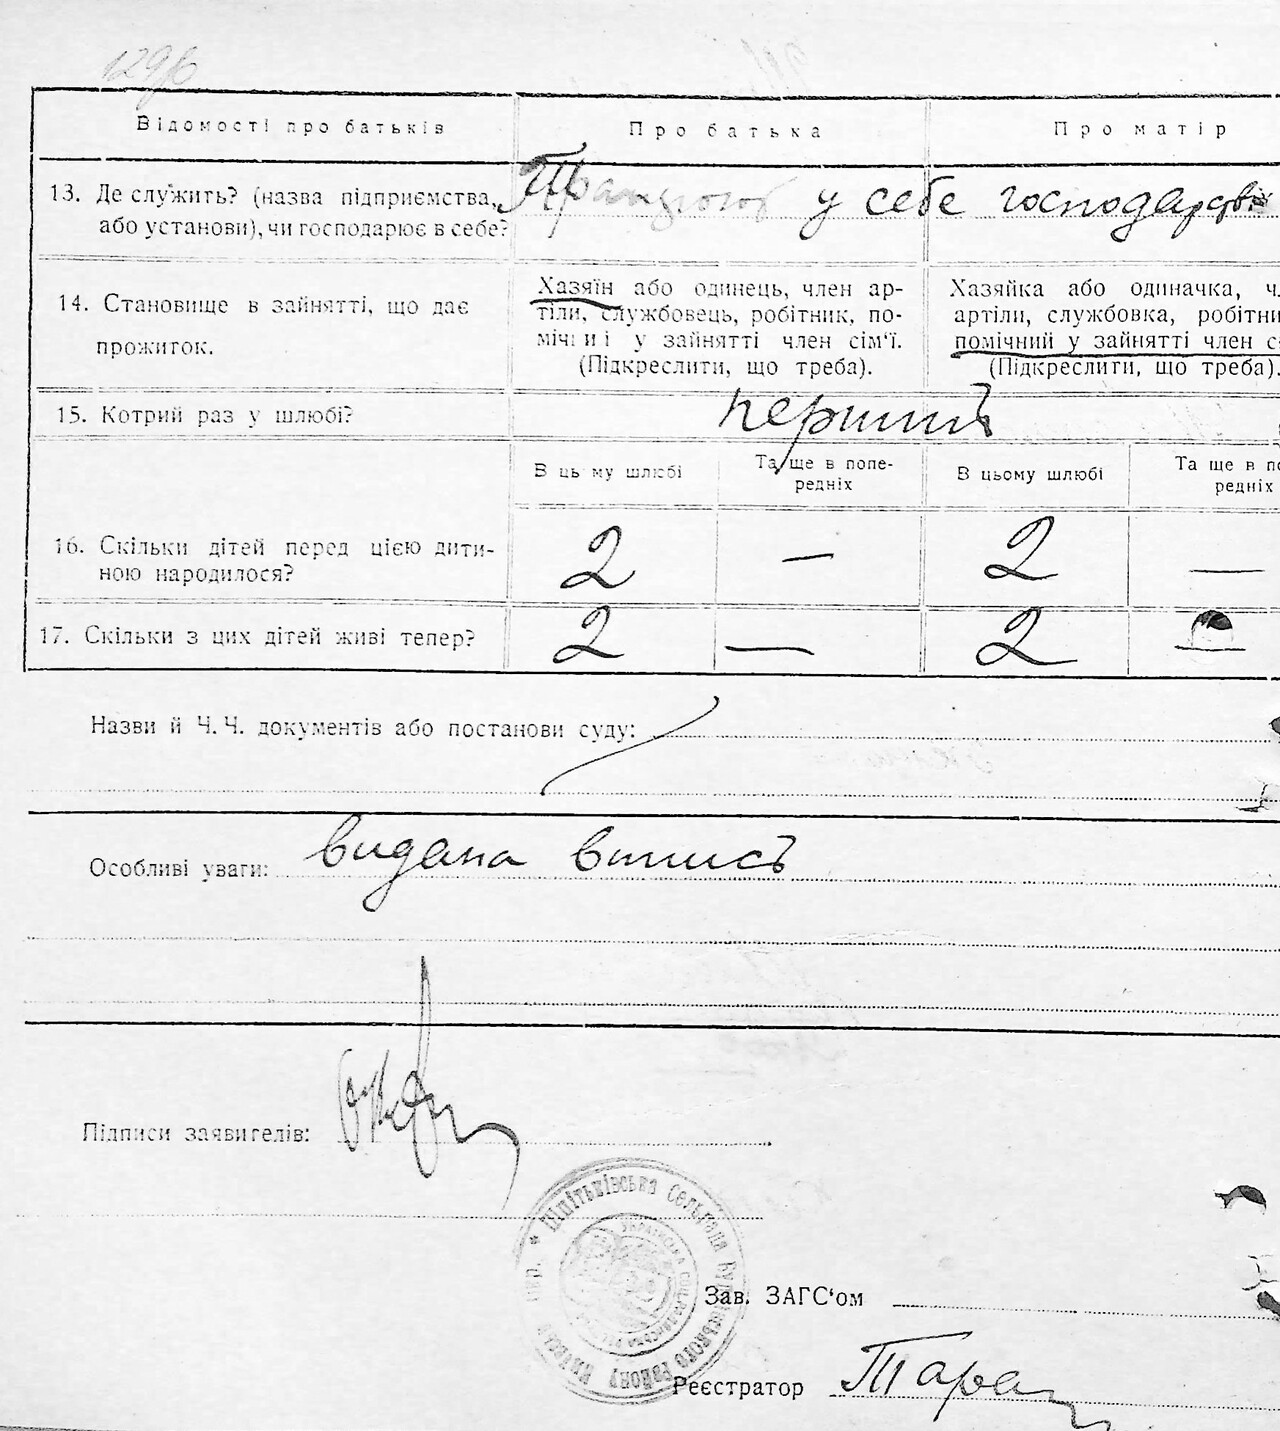 129/6
Відомості про батьків
Про батька
Про матір
13. Де служить? (назва підприємства,
або установи), чи господарює в себе?
у себе господарстві
14. Становище в зайнятті, що дає
прожиток.
Хазяїн або одинець, член ар-
тіли, службовець, робітник, по-
мічни і у зайнятті член сім‘ї.
(Підкреслити, що треба).
Хазяйка або одиначка, чл
артіли, службовка, робітни
помічний у зайнятті член с
(Підкреслити, що треба).
15. Котрий раз у шлюбі?
перший
В ць му шлюбі
Та ще в попе-
редніх
В цьому шлюбі
Та ще в по
редніх
16. Скільки дітей перед цією дити-
ною народилося?
2 — 2 —
17. Скільки з цих дітей живі тепер?
2 — 2 —
Назви й Ч. Ч. документів або постанови суду:
Особливі уваги: видана випись
Підписи заявителів:
* Шпітьківська Сельрада Будаївського району Київськ
УКРАЇНСЬКА СОЦ.
Зав. ЗАГС‘ом
Реєстратор Тара